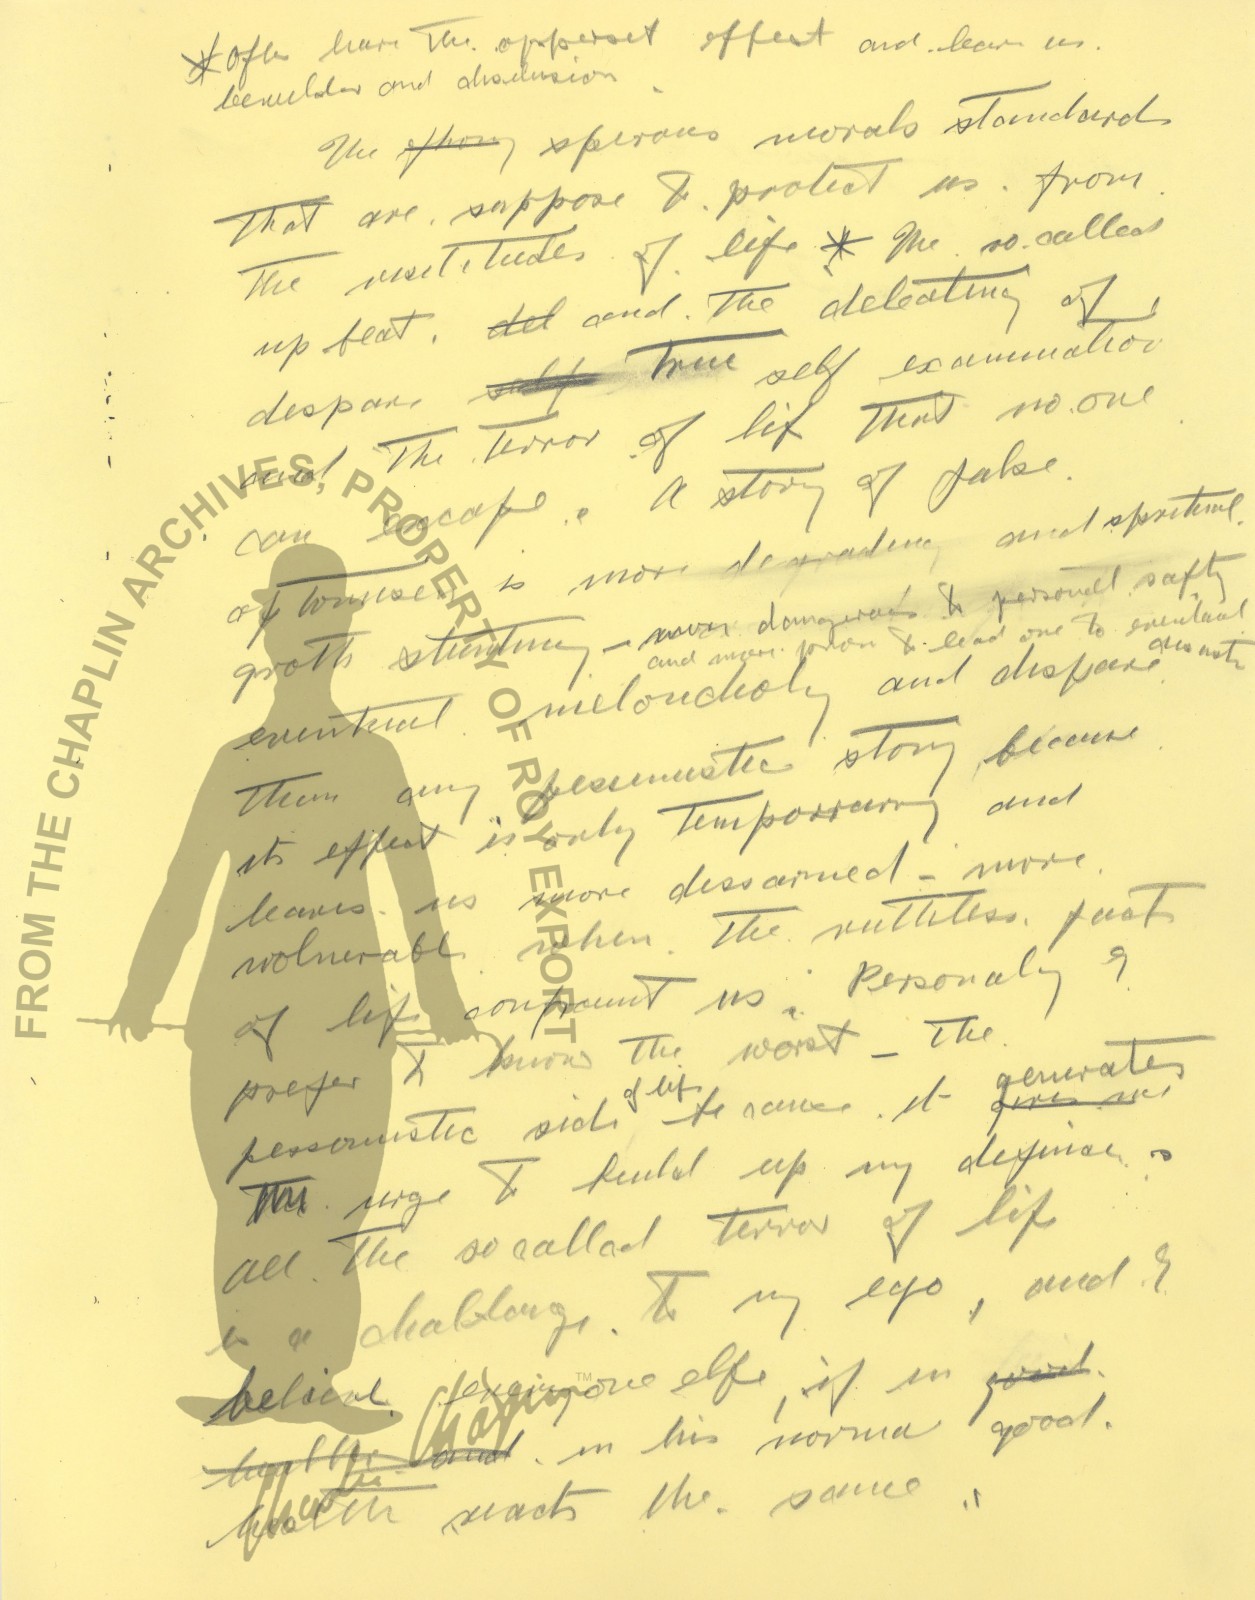 * Often have the opperset effect and leave us.
bewilder and disalusion.
The phony spirous morals standards
that are suppose to protect us. from
the visititudes of life * The so.called
up beat. del and. the deleating of
dispare self true self examination
and the terror of lif that no one
can escape. A story of false
optomisem is more degrading and spiritual
groth stunting – more dangerous to personal safty
and more prone to lead one to eventual
eventual meloncholy and dispare
than any pessemistic story because
its effect is only temporary and
leaves us more dissarmed – more
volnerable when the ruthless fact
of life confraunt us. Personaly I
prefer to know the worst – the
pessomistic side of life because it gives me generates
the urge to build up my defince.
all the so called terror of life
is a challange to my ego, and I
believe everyone else, if in good
health and in his normal good.
health reacts the same.
FROM THE CHAPLIN ARCHIVES, PROPERTY OF ROY EXPORT
Charlie Chaplin ™